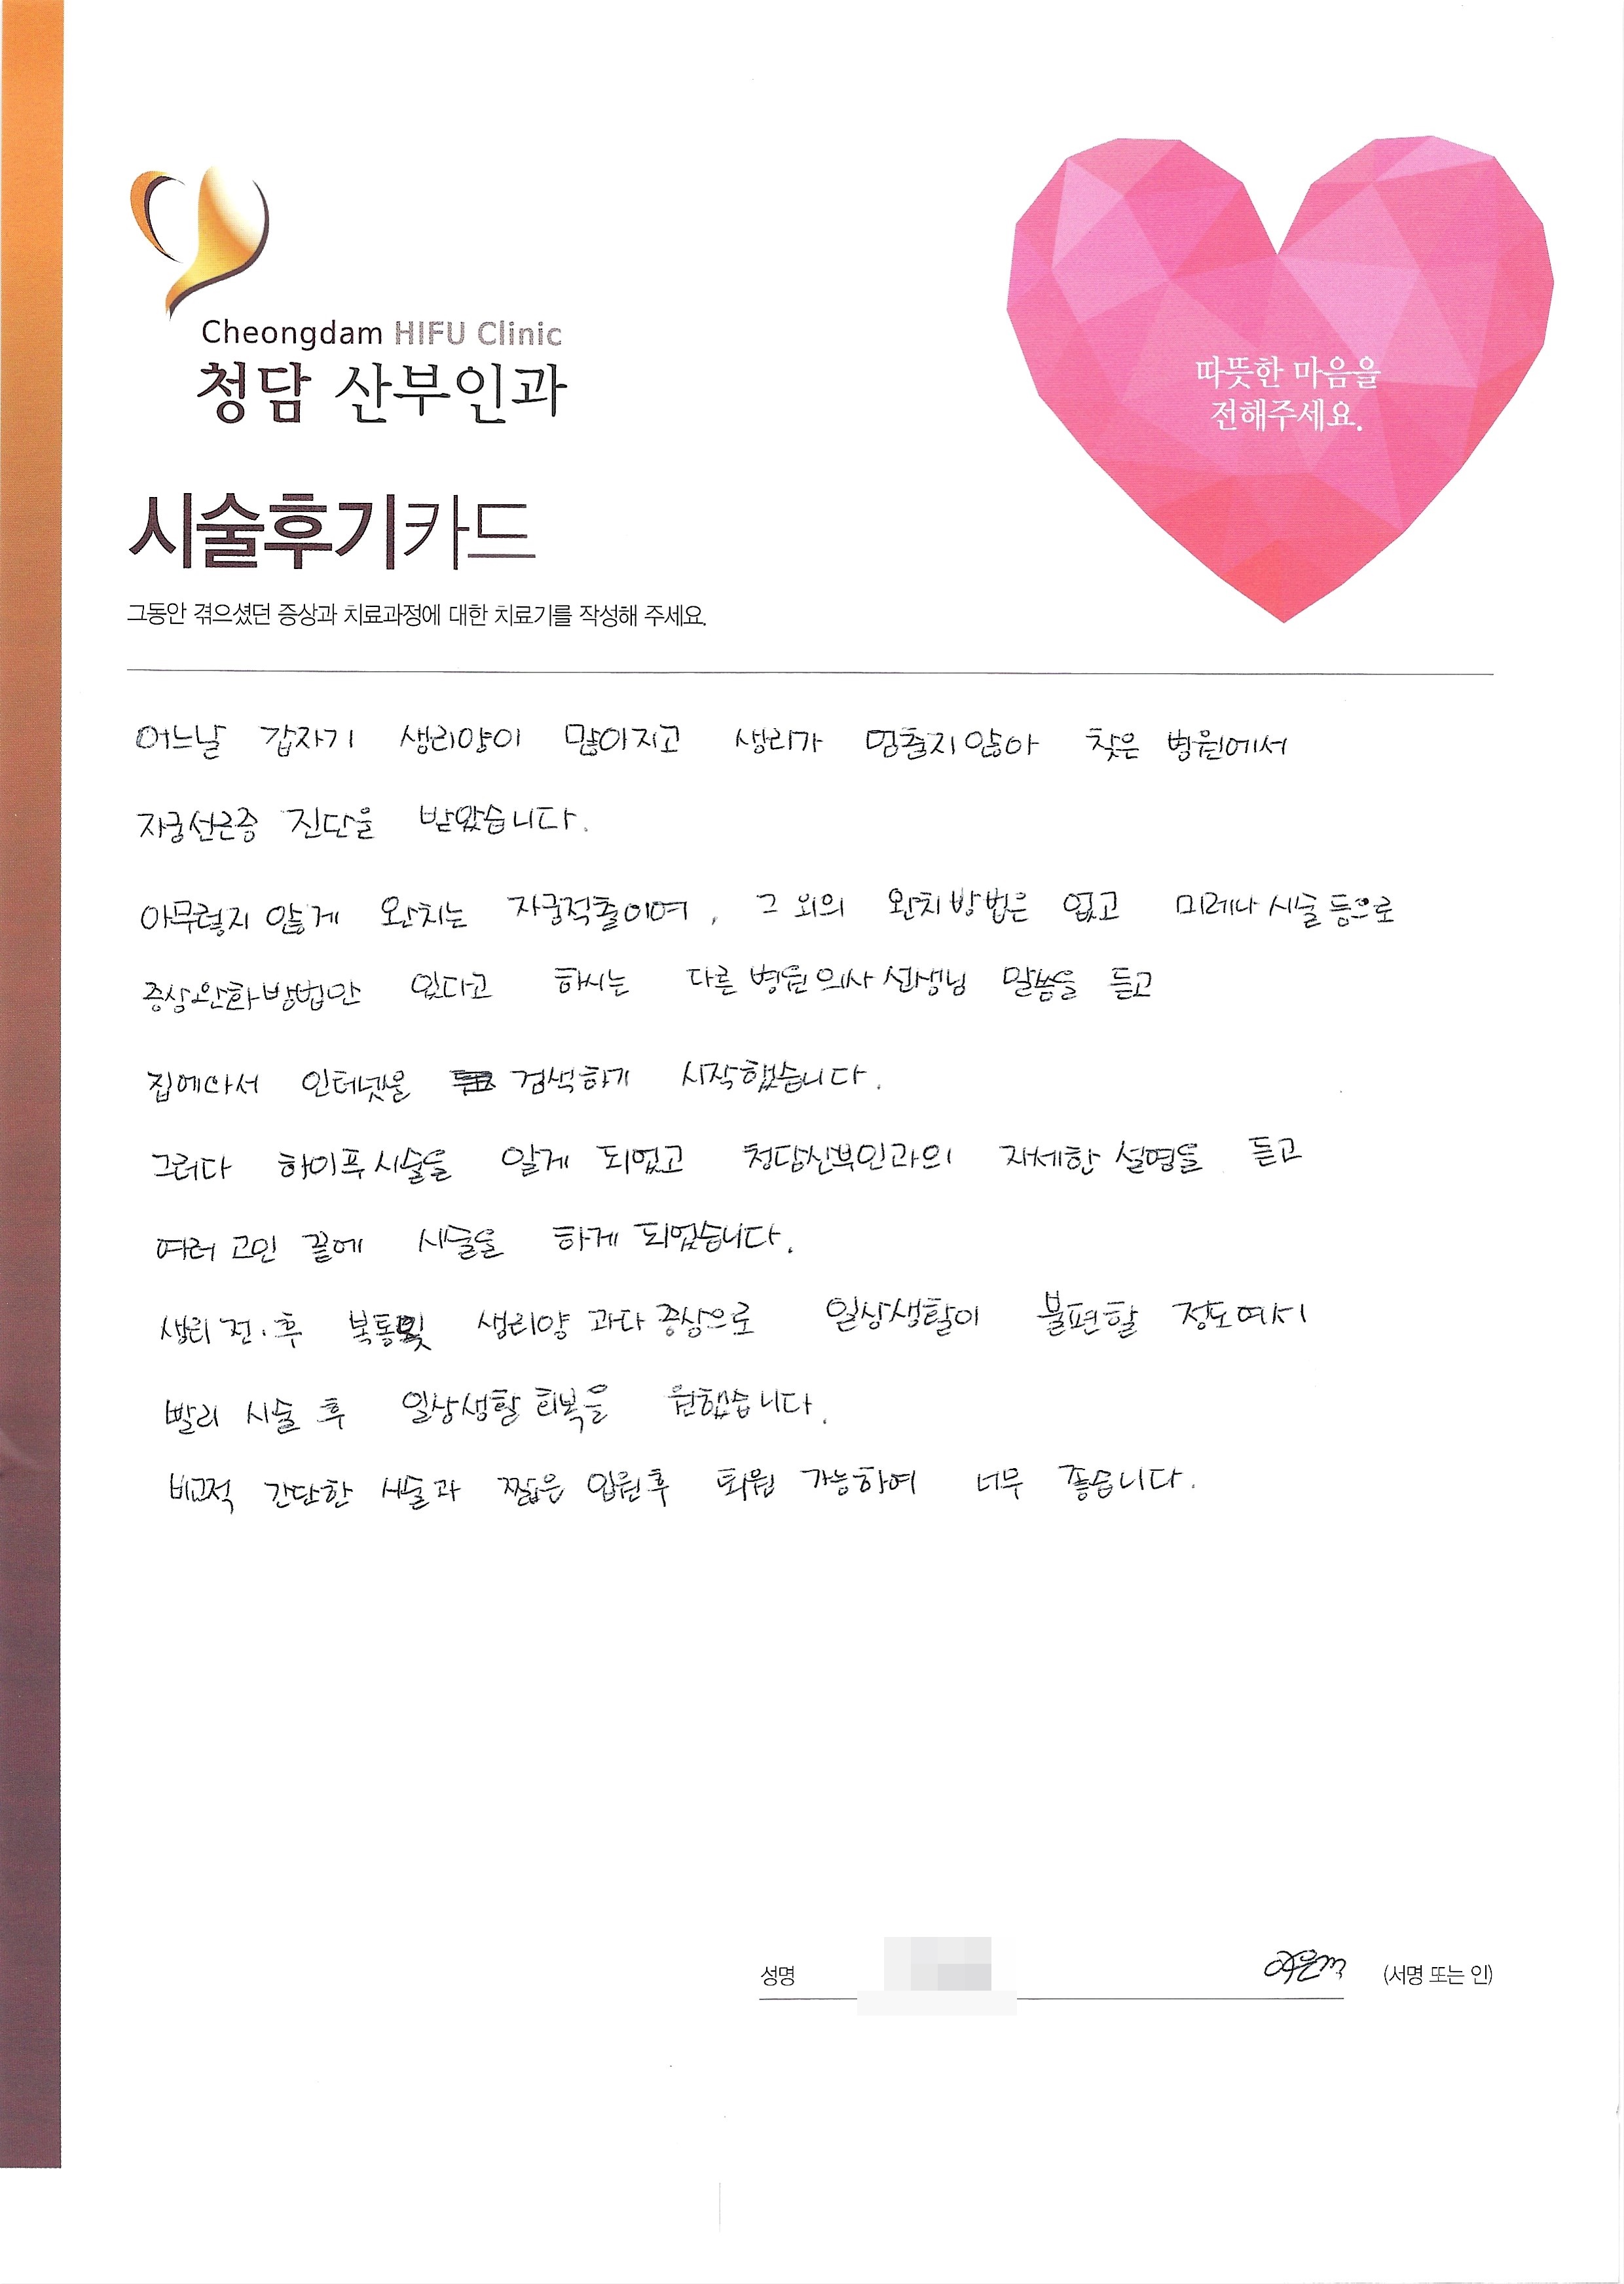 Cheongdam HIFU Clinic
청담 산부인과
따뜻한 마음을
전해주세요.
시술후기카드
그동안 겪으셨던 증상과 치료과정에 대한 치료기를 작성해 주세요.
어느날 갑자기 생리양이 많이지고 생리가 멈출지않아 찾은 병원에서
자궁선근증 진단을 받았습니다.
아무렇지 않게 완치는 자궁적출이며, 그 외의 완치방법은 없고 미레나 시술 등으로
증상완화방법만 있다고 하시는 다른 병원 의사 선생님 말씀을 듣고
집에와서 인터넷을 검색하기 시작했습니다.
그러다 하이푸시술을 알게 되었고 청담산부인과의 자세한 설명을 듣고
여러 고민 끝에 시술을 하게 되었습니다.
생리 전·후 복통및 생리양 과다 증상으로 일상생활이 불편할 정도여서
빨리 시술 후 일상생활 회복을 원했습니다.
비교적 간단한 시술과 짧은 입원후 퇴원 가능하여 너무 좋습니다.
성명 (서명 또는 인)